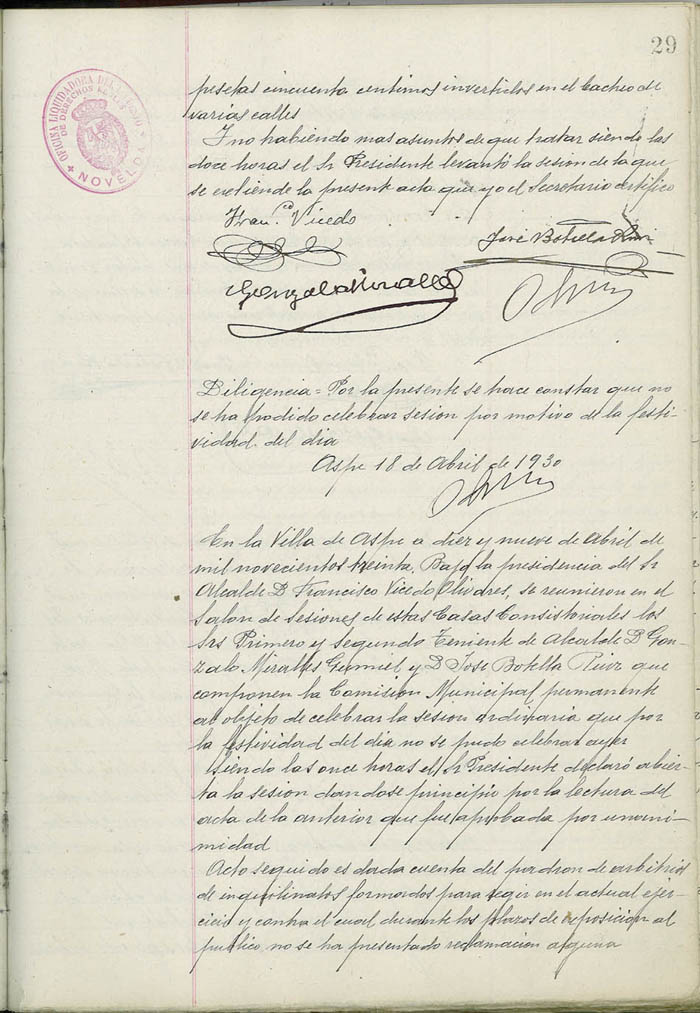 29
OFICINA LIQUIDADORA DEL
DE DERECHOS REALES
NOVELDA
pesetas cincuenta centimos invertidos en el bacheo de
varias calles
Y no habiendo mas asuntos de que tratar siendo las
doce horas el Sr Presidente levantó la sesion de la que
se extiende la presente acta que yo el Secretario certifico
Fran.co Vicedo
José Botella Ruiz
Gonzalo Miralles
Diligencia = Por la presente se hace constar que no
se ha podido celebrar sesion por motivo de la festi-
vidad del dia
Aspe 18 de Abril de 1930
En la Villa de Aspe a diez y nueve de Abril de
mil novecientos treinta. Bajo la presidencia del Sr
Alcalde D Francisco Vicedo Olivares, se reunieron en el
Salon de Sesiones de estas Casas Consistoriales los
Srs Primero y Segundo Teniente de Alcalde D Gon-
zalo Miralles Gumiel y D Jose Botella Ruiz que
componen la Comision Municipal permanente
al objeto de celebrar la sesion ordinaria que por
la festividad del dia no se pudo celebrar ayer
Siendo las once horas el Sr Presidente declaró abier-
ta la sesion dandose principio por la lectura del
acta de la anterior que fue aprobada por unani-
midad
Acto seguido es dada cuenta del padron de arbitrios
de inquilinatos formados para regir en el actual ejer-
cicio y contra el cual durante los plazos de exposicion al
publico, no se ha presentado reclamacion alguna